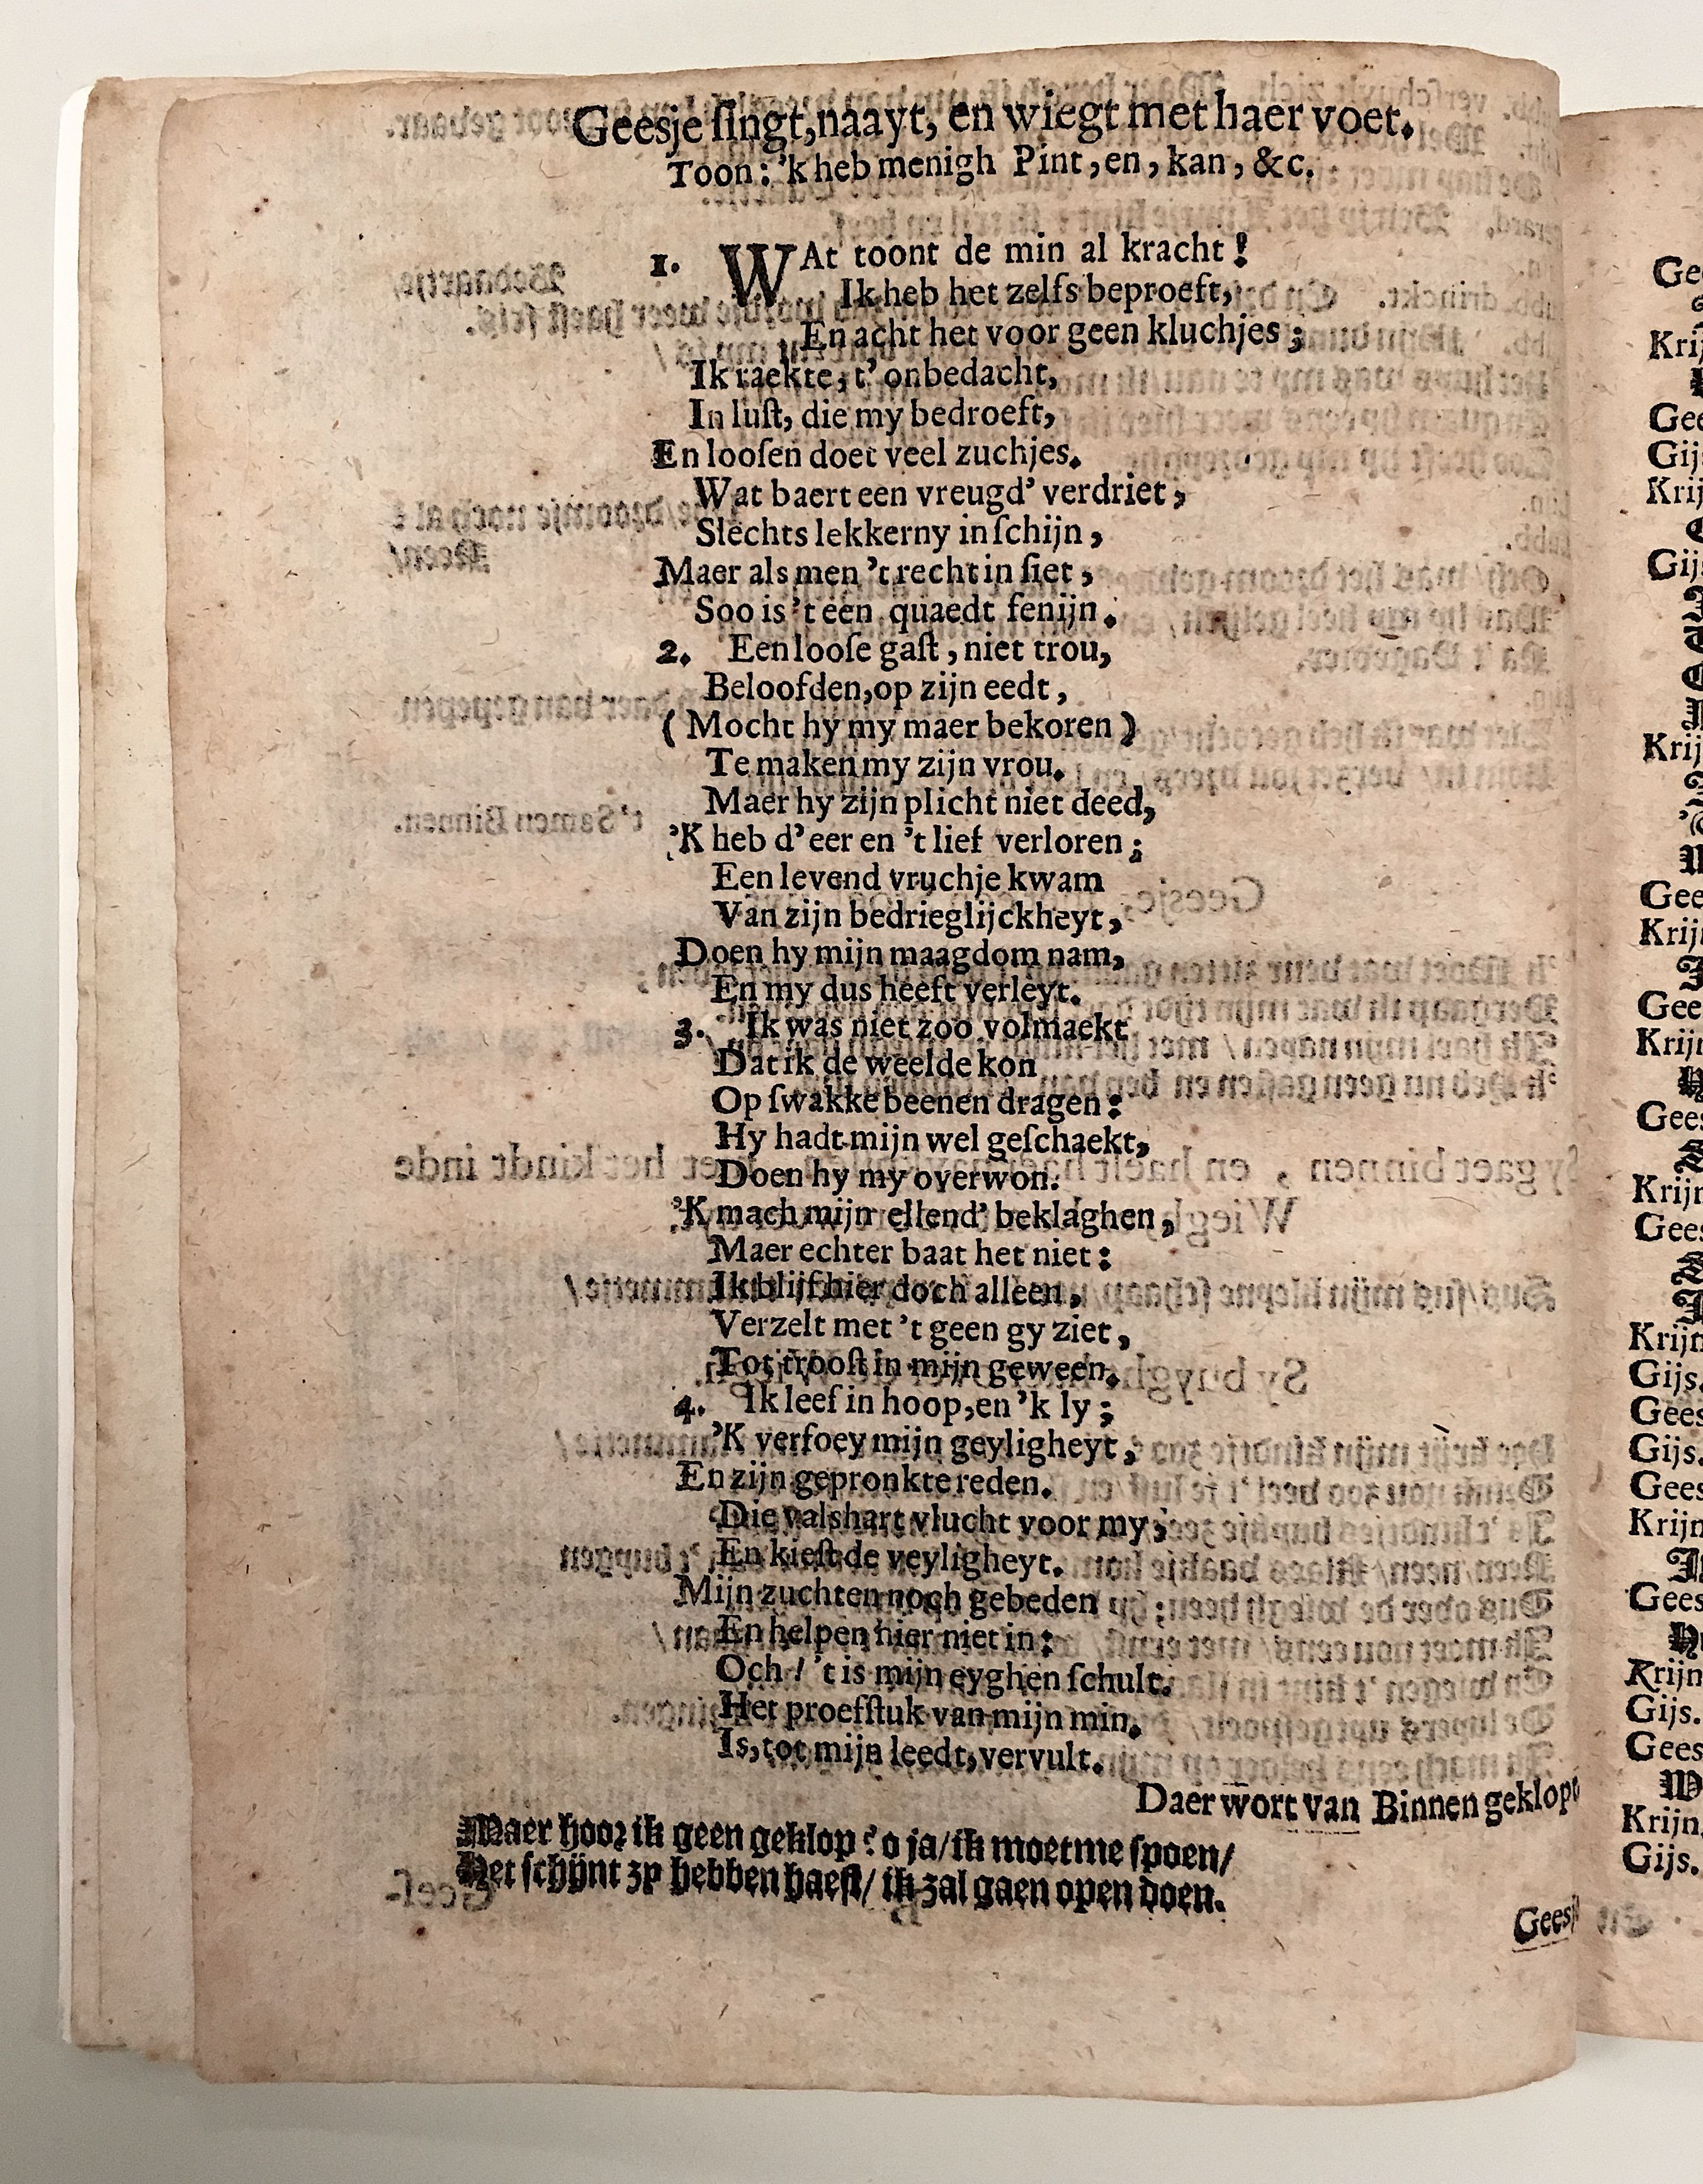 Geesje ſingt, naayt, en wiegt met haer voet.
Toon: 'k heb menigh Pint, en, kan, &c.
1. WAt toont de min al kracht!
Ik heb het zelfs beproeft,
En acht het voor geen kluchjes;
Ik raekte, t' onbedacht,
In luſt, die my bedroeft,
En looſen doet veel zuchjes.
Wat baert een vreugd' verdriet,
Slechts lekkerny in ſchijn,
Maer als men 't recht in ſiet,
Soo is 't een quaedt fenijn.
2. Een looſe gaſt, niet trou,
Beloofden, op zijn eedt,
(Mocht hy my maer bekoren)
Te maken my zijn vrou.
Maer hy zijn plicht niet deed,
'K heb d' eer en 't lief verloren;
Een levend vruchje kwam
Van zijn bedrieglijckheyt,
Doen hy mijn maagdom nam,
En my dus heeft verleyt.
3. Ik was niet zoo volmaekt
Dat ik de weelde kon
Op ſwakke beenen dragen:
Hy hadt mijn wel geſchaekt,
Doen hy my overwon.
'K mach mijn ellend' beklaghen,
Maer echter baat het niet:
Ik blijf hier doch alleen,
Verzelt met 't geen gy ziet,
Tot trooſt in mijn geween.
4. Ik leef in hoop, en 'k ly;
'K verfoey mijn geyligheyt,
En zijn gepronkte reden.
Die valshart vlucht voor my,
En kieſt de veyligheyt.
Mijn zuchten noch gebeden
En helpen hier niet in:
Och! 't is mijn eyghen ſchult.
Het proefſtuk van mijn min.
Is, tot mijn leedt, vervult.
Daer wort van Binnen geklopt
Maer hoor ik geen geklop? o ja/ ik moet me ſpoen/
Het ſchijnt zy hebben haeſt/ ik zal gaen open doen.
Geesj
Gee
Krij
Gee
Gij
Krij
Gij
Krij
Gee
Krij
Gee
Krij
Gees
Krijn
Gees
Krijn
Gijs.
Gees
Gijs.
Gees
Krijn
Gees
Krijn
Gijs.
Gees
Krijn.
Gijs.